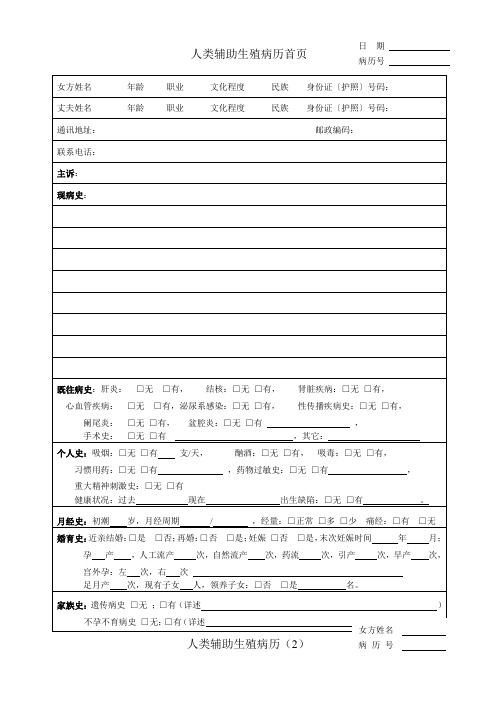 人类辅助生殖病历首页
日 期
病历号
女方姓名 年龄 职业 文化程度 民族 身份证〔护照〕号码:
丈夫姓名 年龄 职业 文化程度 民族 身份证〔护照〕号码:
通讯地址: 邮政编码:
联系电话:
主诉:
现病史:
既往病史: 肝炎: □无 □有, 结核: □无 □有, 肾脏疾病: □无 □有,
心血管疾病: □无 □有, 泌尿系感染: □无 □有, 性传播疾病史: □无 □有,
阑尾炎: □无 □有, 盆腔炎: □无 □有 ,
手术史: □无 □有 , 其它:
个人史: 吸烟: □无 □有 支/天, 酗酒: □无 □有, 吸毒: □无 □有,
习惯用药: □无 □有 , 药物过敏史: □无 □有 ,
重大精神刺激史: □无 □有
健康状况: 过去 现在 出生缺陷: □无 □有 。
月经史: 初潮 岁, 月经周期 / , 经量: □正常 □多 □少 痛经: □有 □无
婚育史: 近亲结婚: □是 □否; 再婚: □否 □是; 妊娠 □否 □是, 末次妊娠时间 年 月;
孕 产 , 人工流产 次, 自然流产 次, 药流 次, 引产 次, 早产 次,
宫外孕: 左 次, 右 次
足月产 次, 现有子女 人, 领养子女: □否 □是 名。
家族史: 遗传病史 □无 ; □有 (详述 )
不孕不育病史 □无; □有 (详述
女方姓名
人类辅助生殖病历（2）
病 历 号